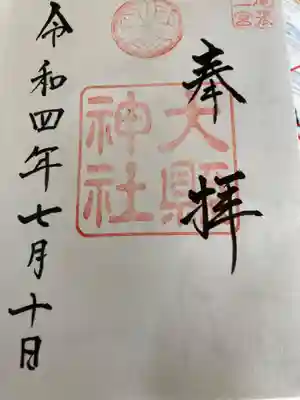 奉拝
大縣
神社
令和四年七月十日